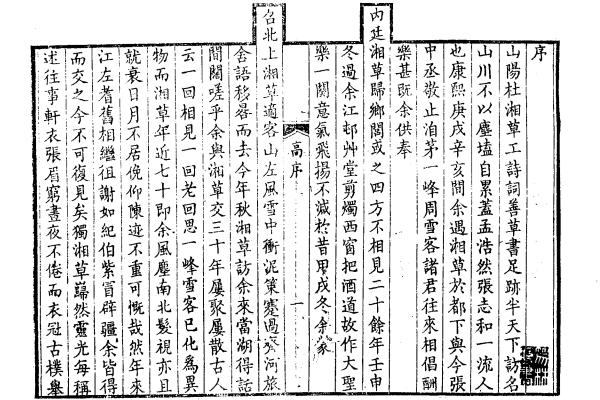 序
山陽杜湘草工詩詞善草書足跡半天下訪名
山川不以塵壒自累蓋孟浩然張志和一流人
也康熙庚戌辛亥間余遇湘草於都下與今張
中丞敬止洎茅一峰周雪客諸君往來相倡酬
樂甚既余供奉
内廷湘草歸鄉閭或之四方不相見二十餘年壬申
冬過余江邨艸堂剪燭西窗把酒道故作大聖
樂一闋意氣飛揚不減於昔甲戌冬余蒙
高序
一
召北上湘草適客山左風雪中衝泥策蹇過齊河旅
舍語移晷而去今年秋湘草訪余來當湖得話
間闊嗟乎余與湘草交三十年屢聚屢散古人
云一回相見一回老回思一峰雪客已化為異
物而湘草年近七十即余風塵南北髮視亦且
就衰日月不居俛仰陳迹不重可慨哉然年來
江左耆舊相繼徂謝如紀伯紫冒辟疆余皆得
而交之今不可復見矣獨湘草巋然靈光每稱
述往事軒衣張眉窮晝夜不倦而衣冠古樸舉